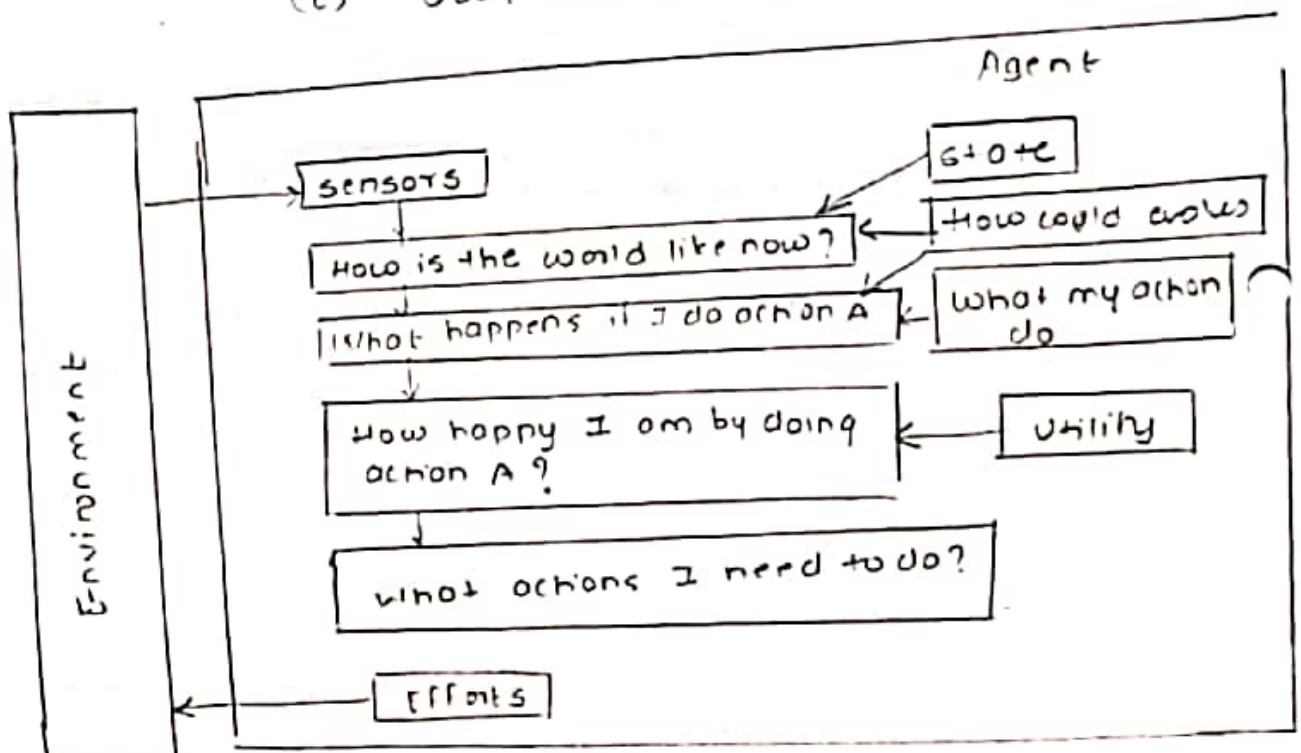 (c)
Agent
state
sensors
How could evolves
How is the world like now?
What my action
do
What happens if I do action A
How happy I am by doing
action A?
Utility
What actions I need to do?
Efforts
Environment